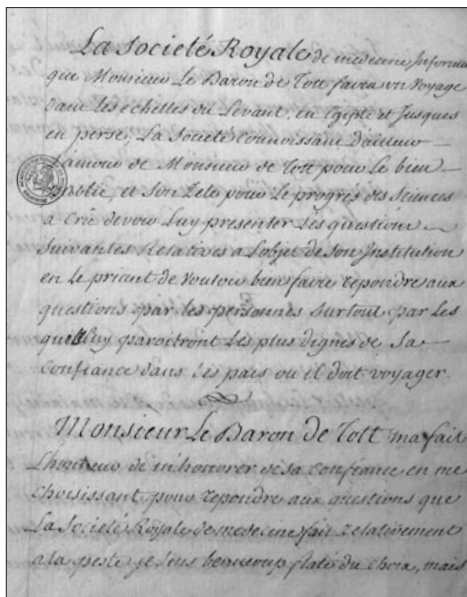 La Societé Royale de médecine Informée
que Monsieur Le Baron de Tott faira un Voyage
dans les echelles du Levant, en Egipte et Jusques
en perse, La Société Connoissant D'ailleurs
L'amour de Monsieur de Tott pour le bien
Public, et Son Zele pour le progrès des Sciences
à Crû devoir Luy presenter Les questions
Suivantes Relatives a L'objet de son Institution
en le priant de Vouloir bien faire repondre aux
questions par les personnes Surtout par Les
quelles Luy paroitront Les plus dignes de Sa
Confiance dans les païs ou il doit voyager.
Monsieur Le Baron de Tott ma fait
L'honneur de m'honorer de sa Confiance en me
Choisissant pour repondre aux questions que
La Société Royale de medecine fait relativement
a la peste je suis beaucoup flaté du choix, mais